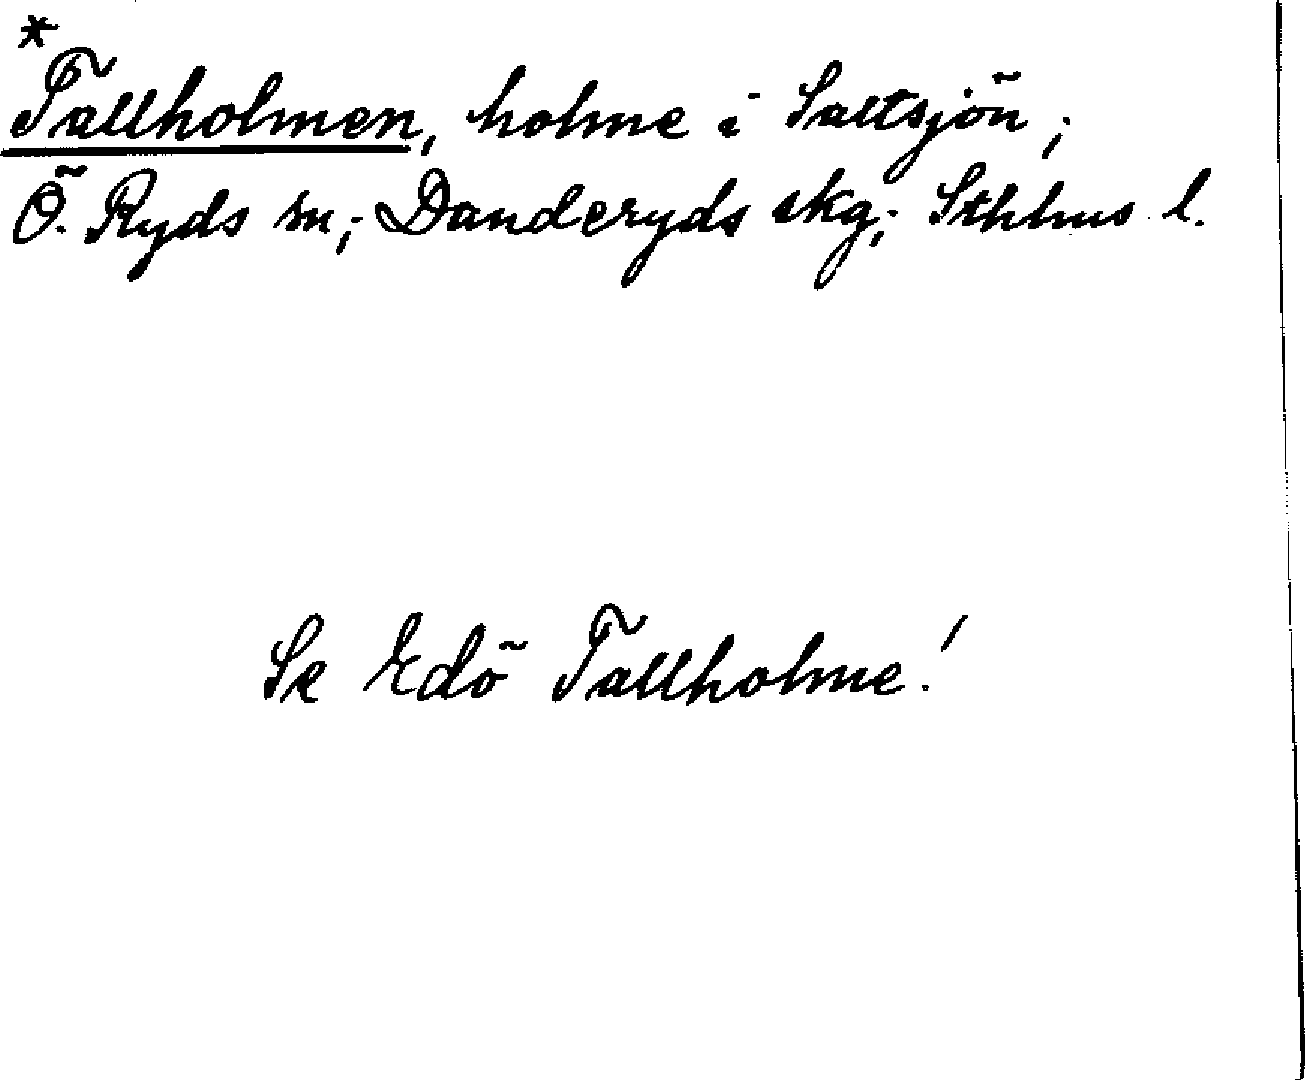 *
Tallholmen, holme i Saltsjön;
Ö. Ryds sn; Danderyds skg; Sthlms l.
Se Edö Tallholme!